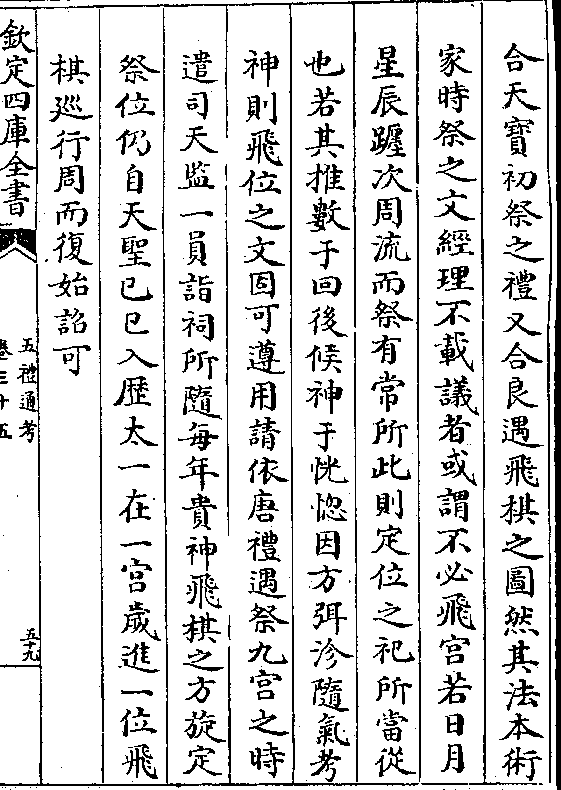 合天寳初祭之禮又合良遇飛棋之圖然其法本術
家時祭之文經理不載議者或謂不必飛宫若日月
星辰躔次周流而祭有常所此則定位之祀所當從
也若其推數于回後候神于恍惚因方弭沴隨氣考
神則飛位之文固可遵用請依唐禮遇祭九宫之時
遣司天監一員詣祠所隨每年貴神飛棋之方旋定
祭位仍自天聖己巳入歴太一在一宫歲進一位飛
棋巡行周而復始詔可
欽定四庫全書
五禮通考
卷三十五
五十九